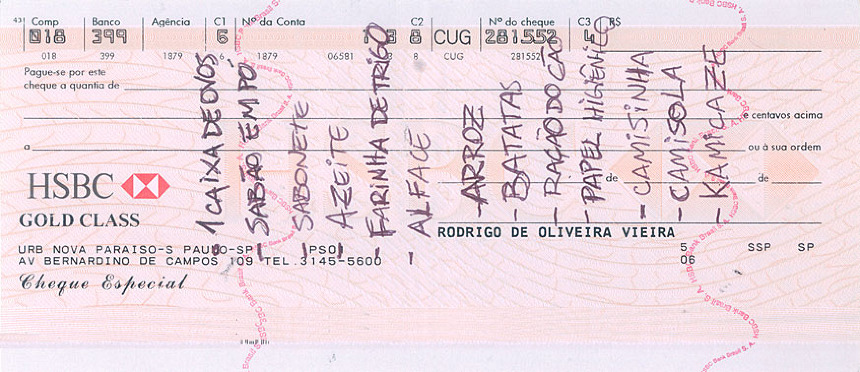 431 Comp Banco Agência C1 Nº da Conta C2 Nº do cheque C3 R$
018 399 6 8 8 CUG 281552 4
018 399 1879 1879 6 06581 8 CUG 281552
Pague-se por este
cheque a quantia de
e centavos acima
a ou à sua ordem
de de
HSBC
GOLD CLASS
RODRIGO DE OLIVEIRA VIEIRA
URB NOVA PARAISO-S PAULO-SP
AV BERNARDINO DE CAMPOS 109 TEL.3145-5600
5 SSP SP
06
Cheque Especial
- 1 CAIXA DE OVOS
- SABÃO EM PÓ
- SABONETE
- AZEITE
- FARINHA DE TRIGO
- ALFACE
- ARROZ
- BATATAS
- RAÇÃO DO CÃO
- PAPEL HIGIÊNICO
- CAMISINHA
- CAMISOLA
- KAMICAZE
HSBC Bank Brasil S. A.